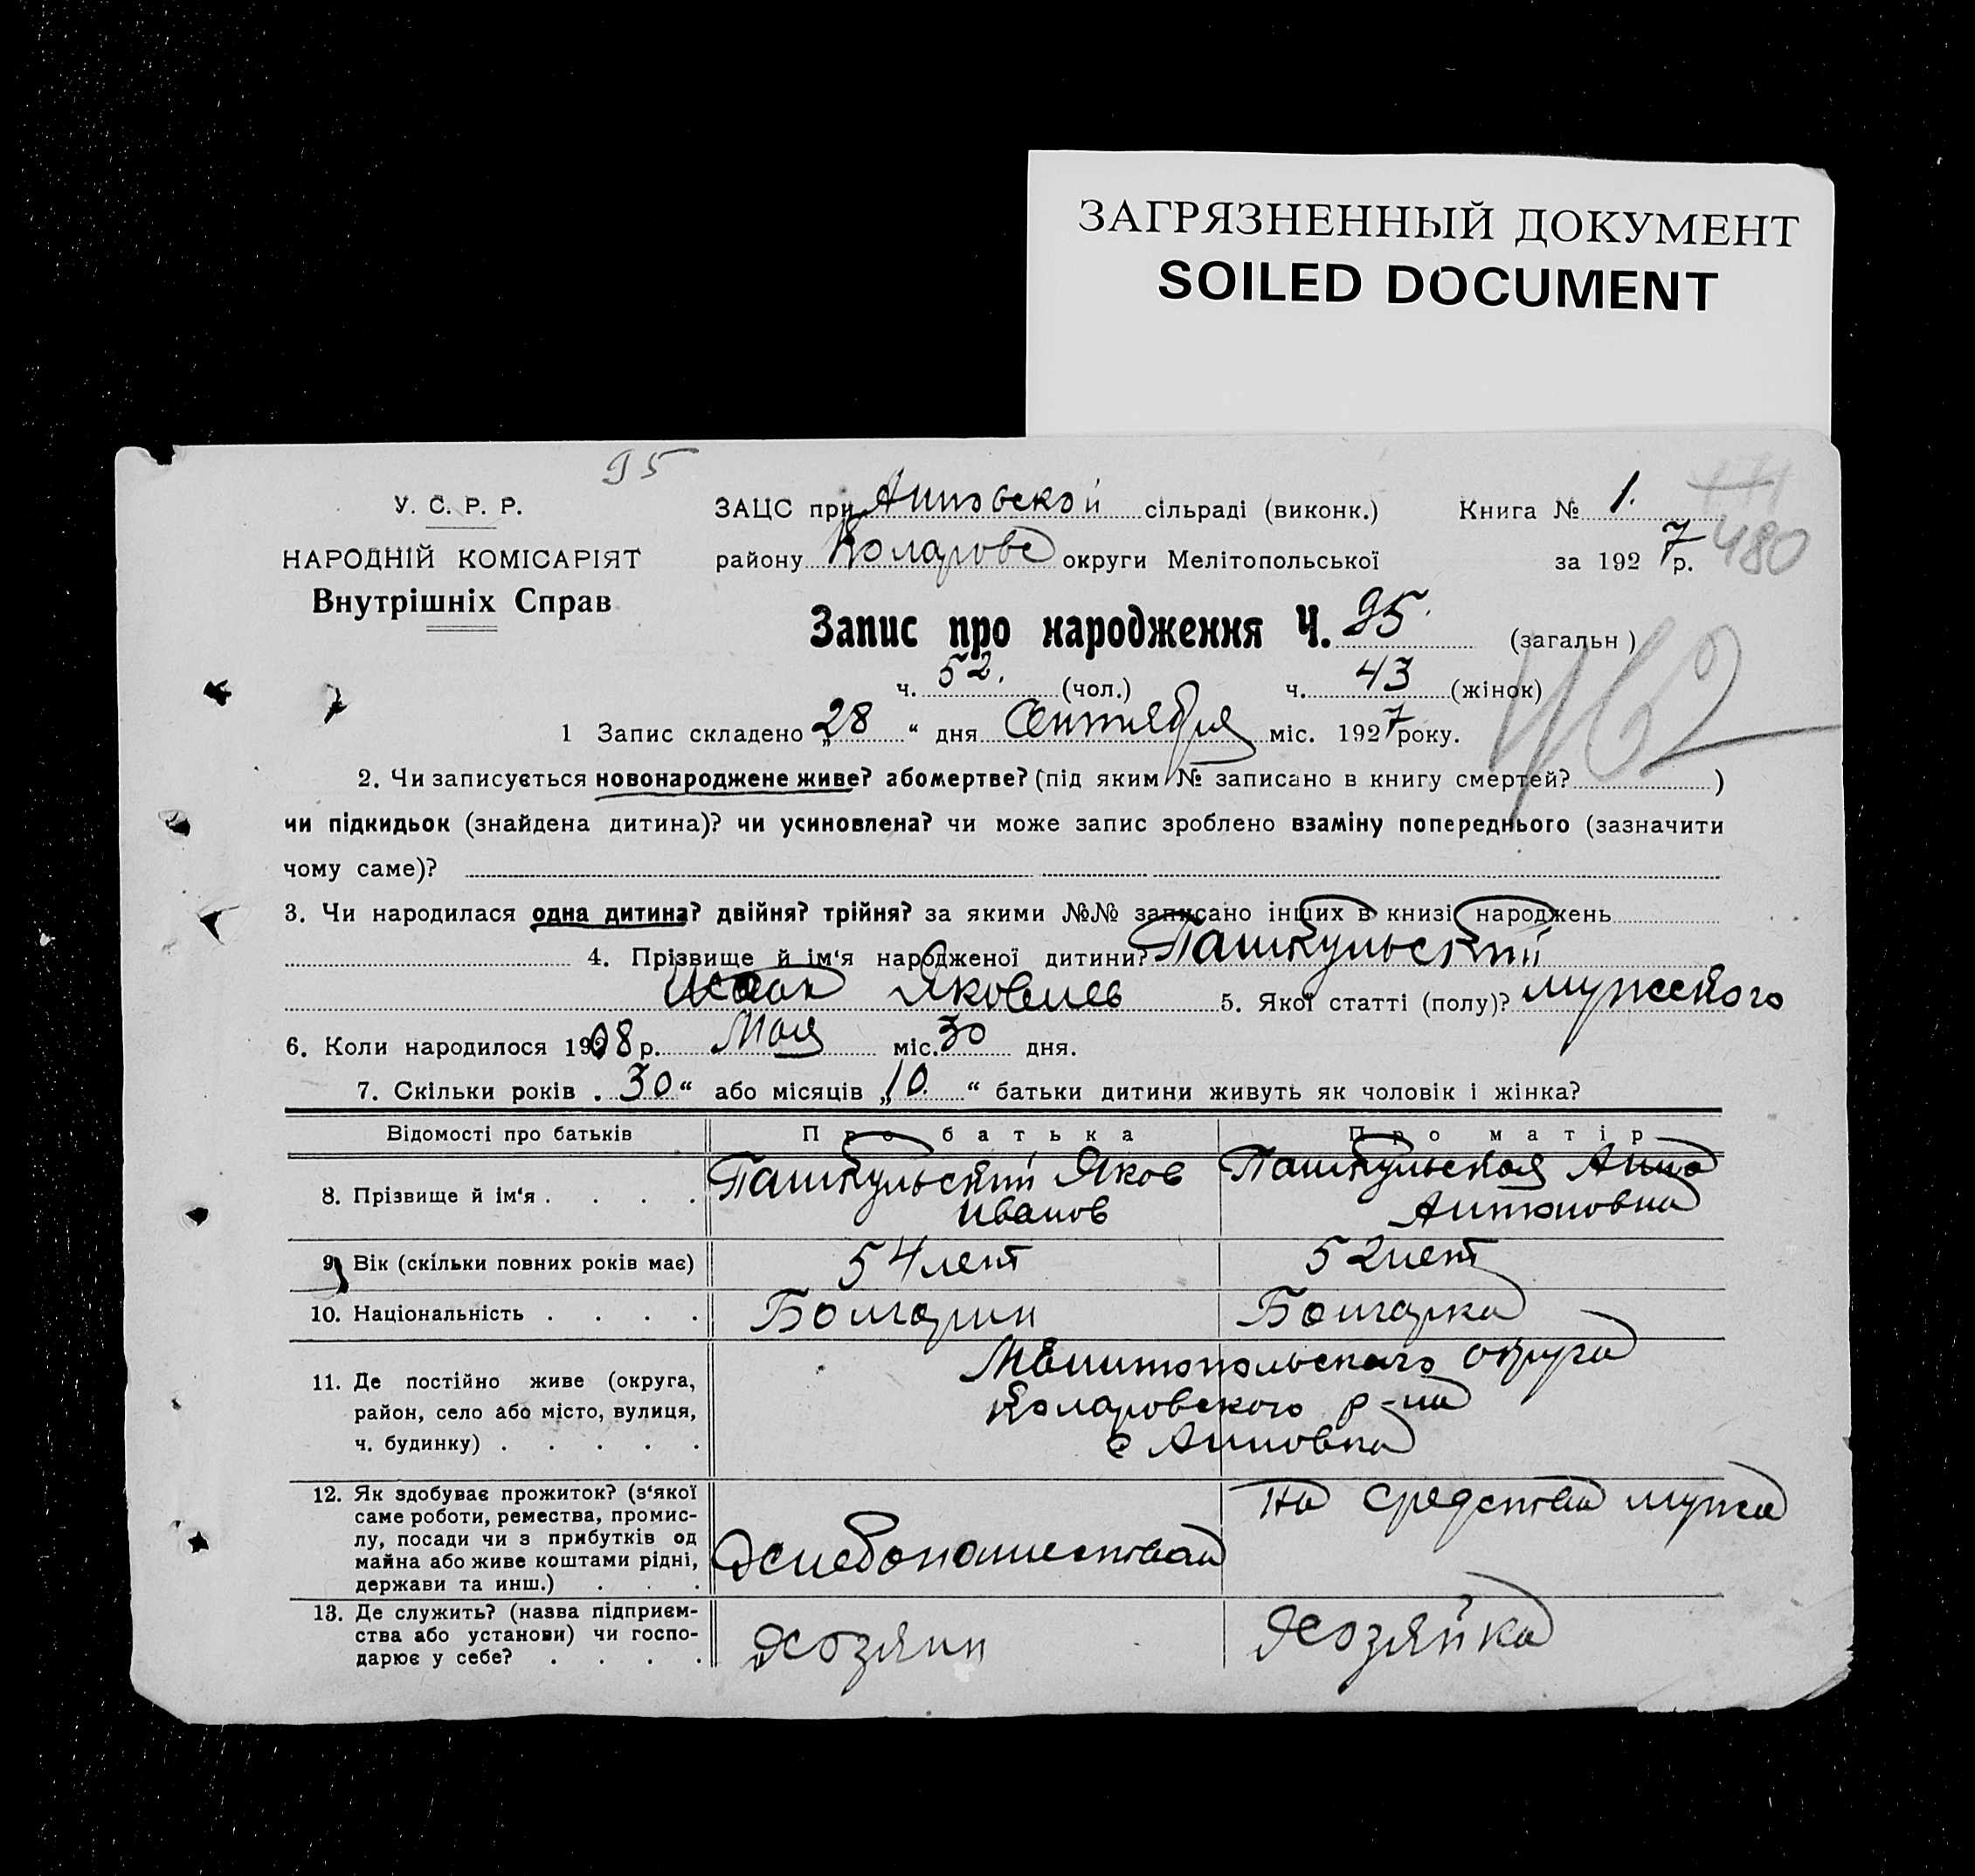 ЗАГРЯЗНЕННЫЙ ДОКУМЕНТ
SOILED DOCUMENT
95
У. С. Р. Р.
НАРОДНІЙ КОМІСАРІЯТ
Внутрішніх Справ
ЗАЦС при Анновской сільраді (виконк.) Книга № 1.
480
району Коларовс округи Мелітопольської за 1927 р.
Запис про народження Ч. 95. (загальн)
ч. 52. (чол.) ч. 43 (жінок)
462
1 Запис складено „28“ дня Сентября міс. 1927 року.
2. Чи записується новонароджене живе? або мертве? (під яким № записано в книгу смертей? )
чи підкидьок (знайдена дитина)? чи усиновлена? чи може запис зроблено взаміну попереднього (зазначити
чому саме)?
3. Чи народилася одна дитина? двійня? трійня? за якими №№ записано інших в книзі народжень
4. Прізвище й ім‘я народженої дитини? Пашкульский
Исаак Яковлев 5. Якої статті (полу)? мужского
6. Коли народилося 1908 р. Мая міс. 30 дня.
7. Скільки років „30“ або місяців „10.“ батьки дитини живуть як чоловік і жінка?
Відомості про батьків Про батька Про матір
8. Прізвище й ім‘я . . . . Пашкульский Яков Пашкульская Анна
Иванов Антоновна
9. Вік (скільки повних років має) 54 лет 52 лет
10. Національність . . . . Болгарин Болгарка
11. Де постійно живе (округа,
район, село або місто, вулиця,
ч. будинку) . . . . .
Мелитопольского округа
Коларовского р-на
с Анновка
12. Як здобуває прожиток? (з‘якої
саме роботи, ремества, промис-
лу, посади чи з прибутків од
майна або живе коштами рідні,
держави та инш.) . . .
Хлебопашества
на средства мужа
13. Де служить? (назва підприєм-
ства або установи) чи госпо-
дарює у себе? . . . .
Хозяин Хозяйка